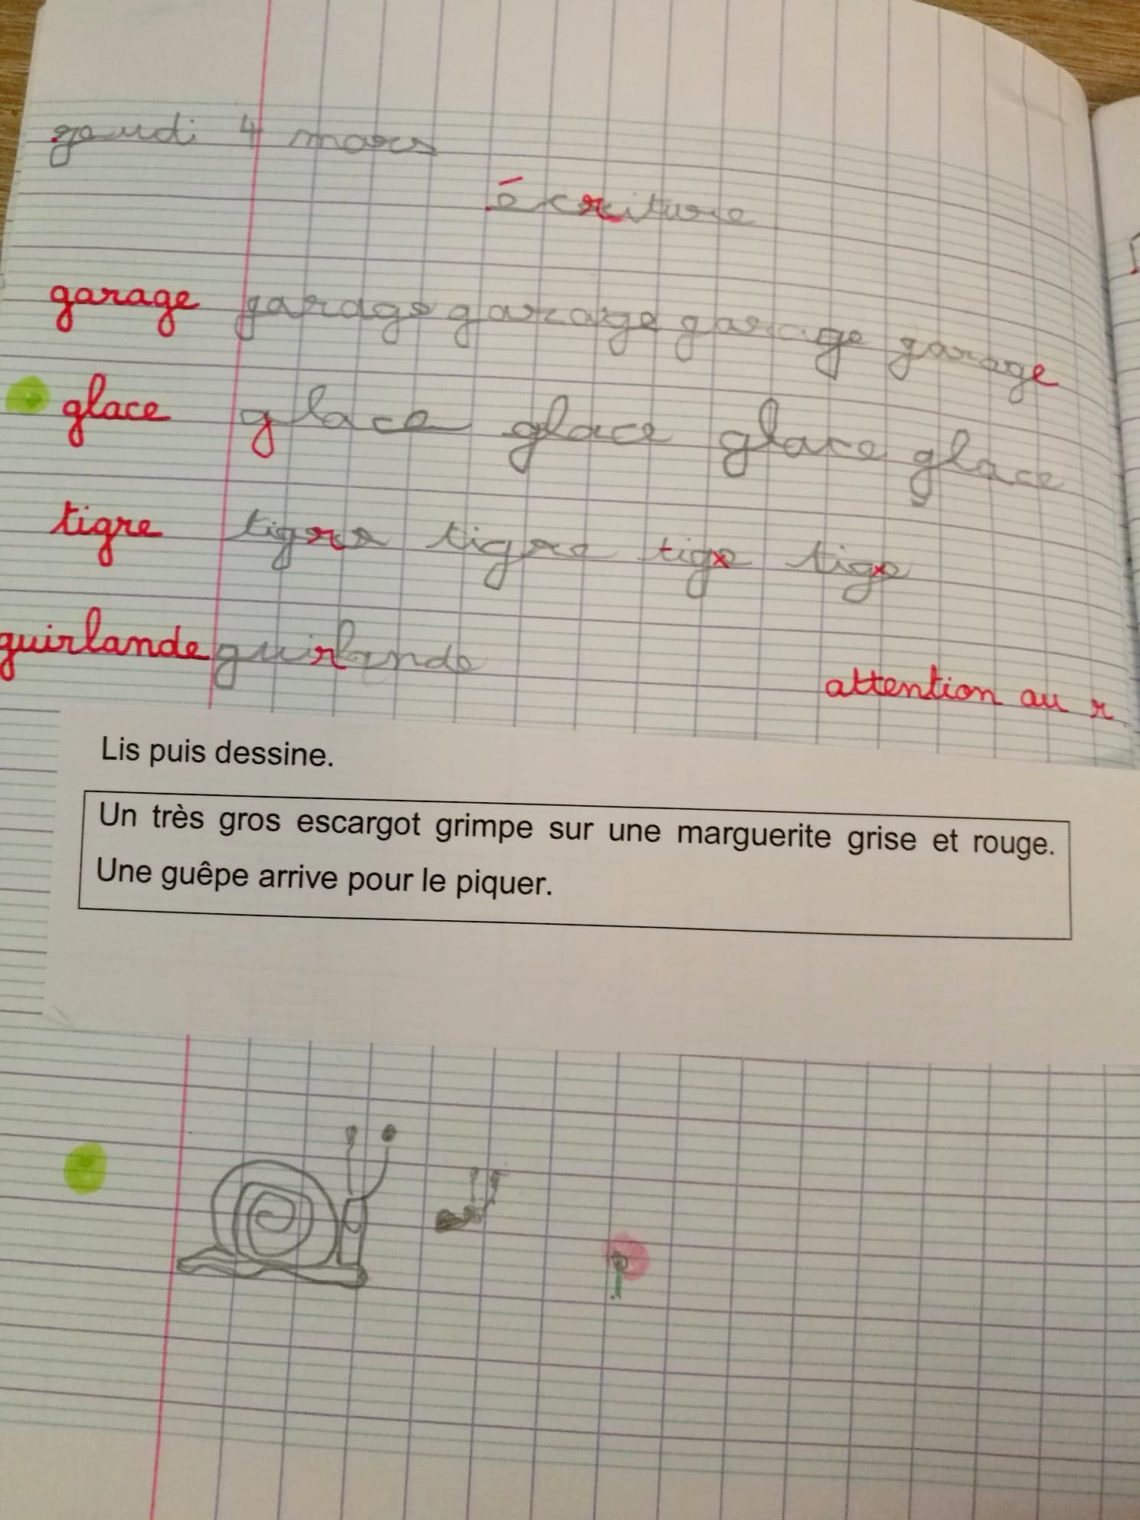 jeudi 4 mars
écriture
garage garage garage garage garage
glace glace glace glace glace
tigre tigre tigre tige tige
guirlande guirlande
attention au r
Lis puis dessine.
Un très gros escargot grimpe sur une marguerite grise et rouge.
Une guêpe arrive pour le piquer.